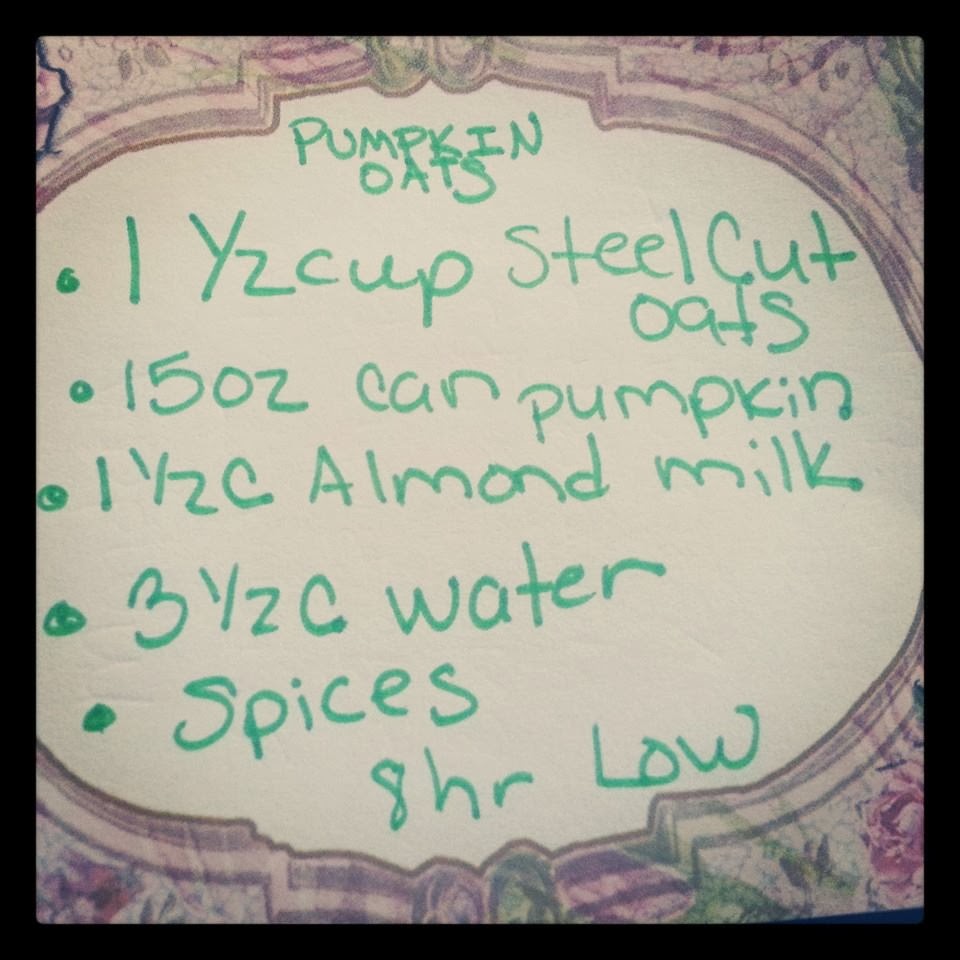 PUMPKIN
OATS
• 1 1/2 cup Steel Cut
oats
• 15oz can pumpkin
• 1 1/2 C Almond milk
• 3 1/2 C water
• Spices
8hr Low